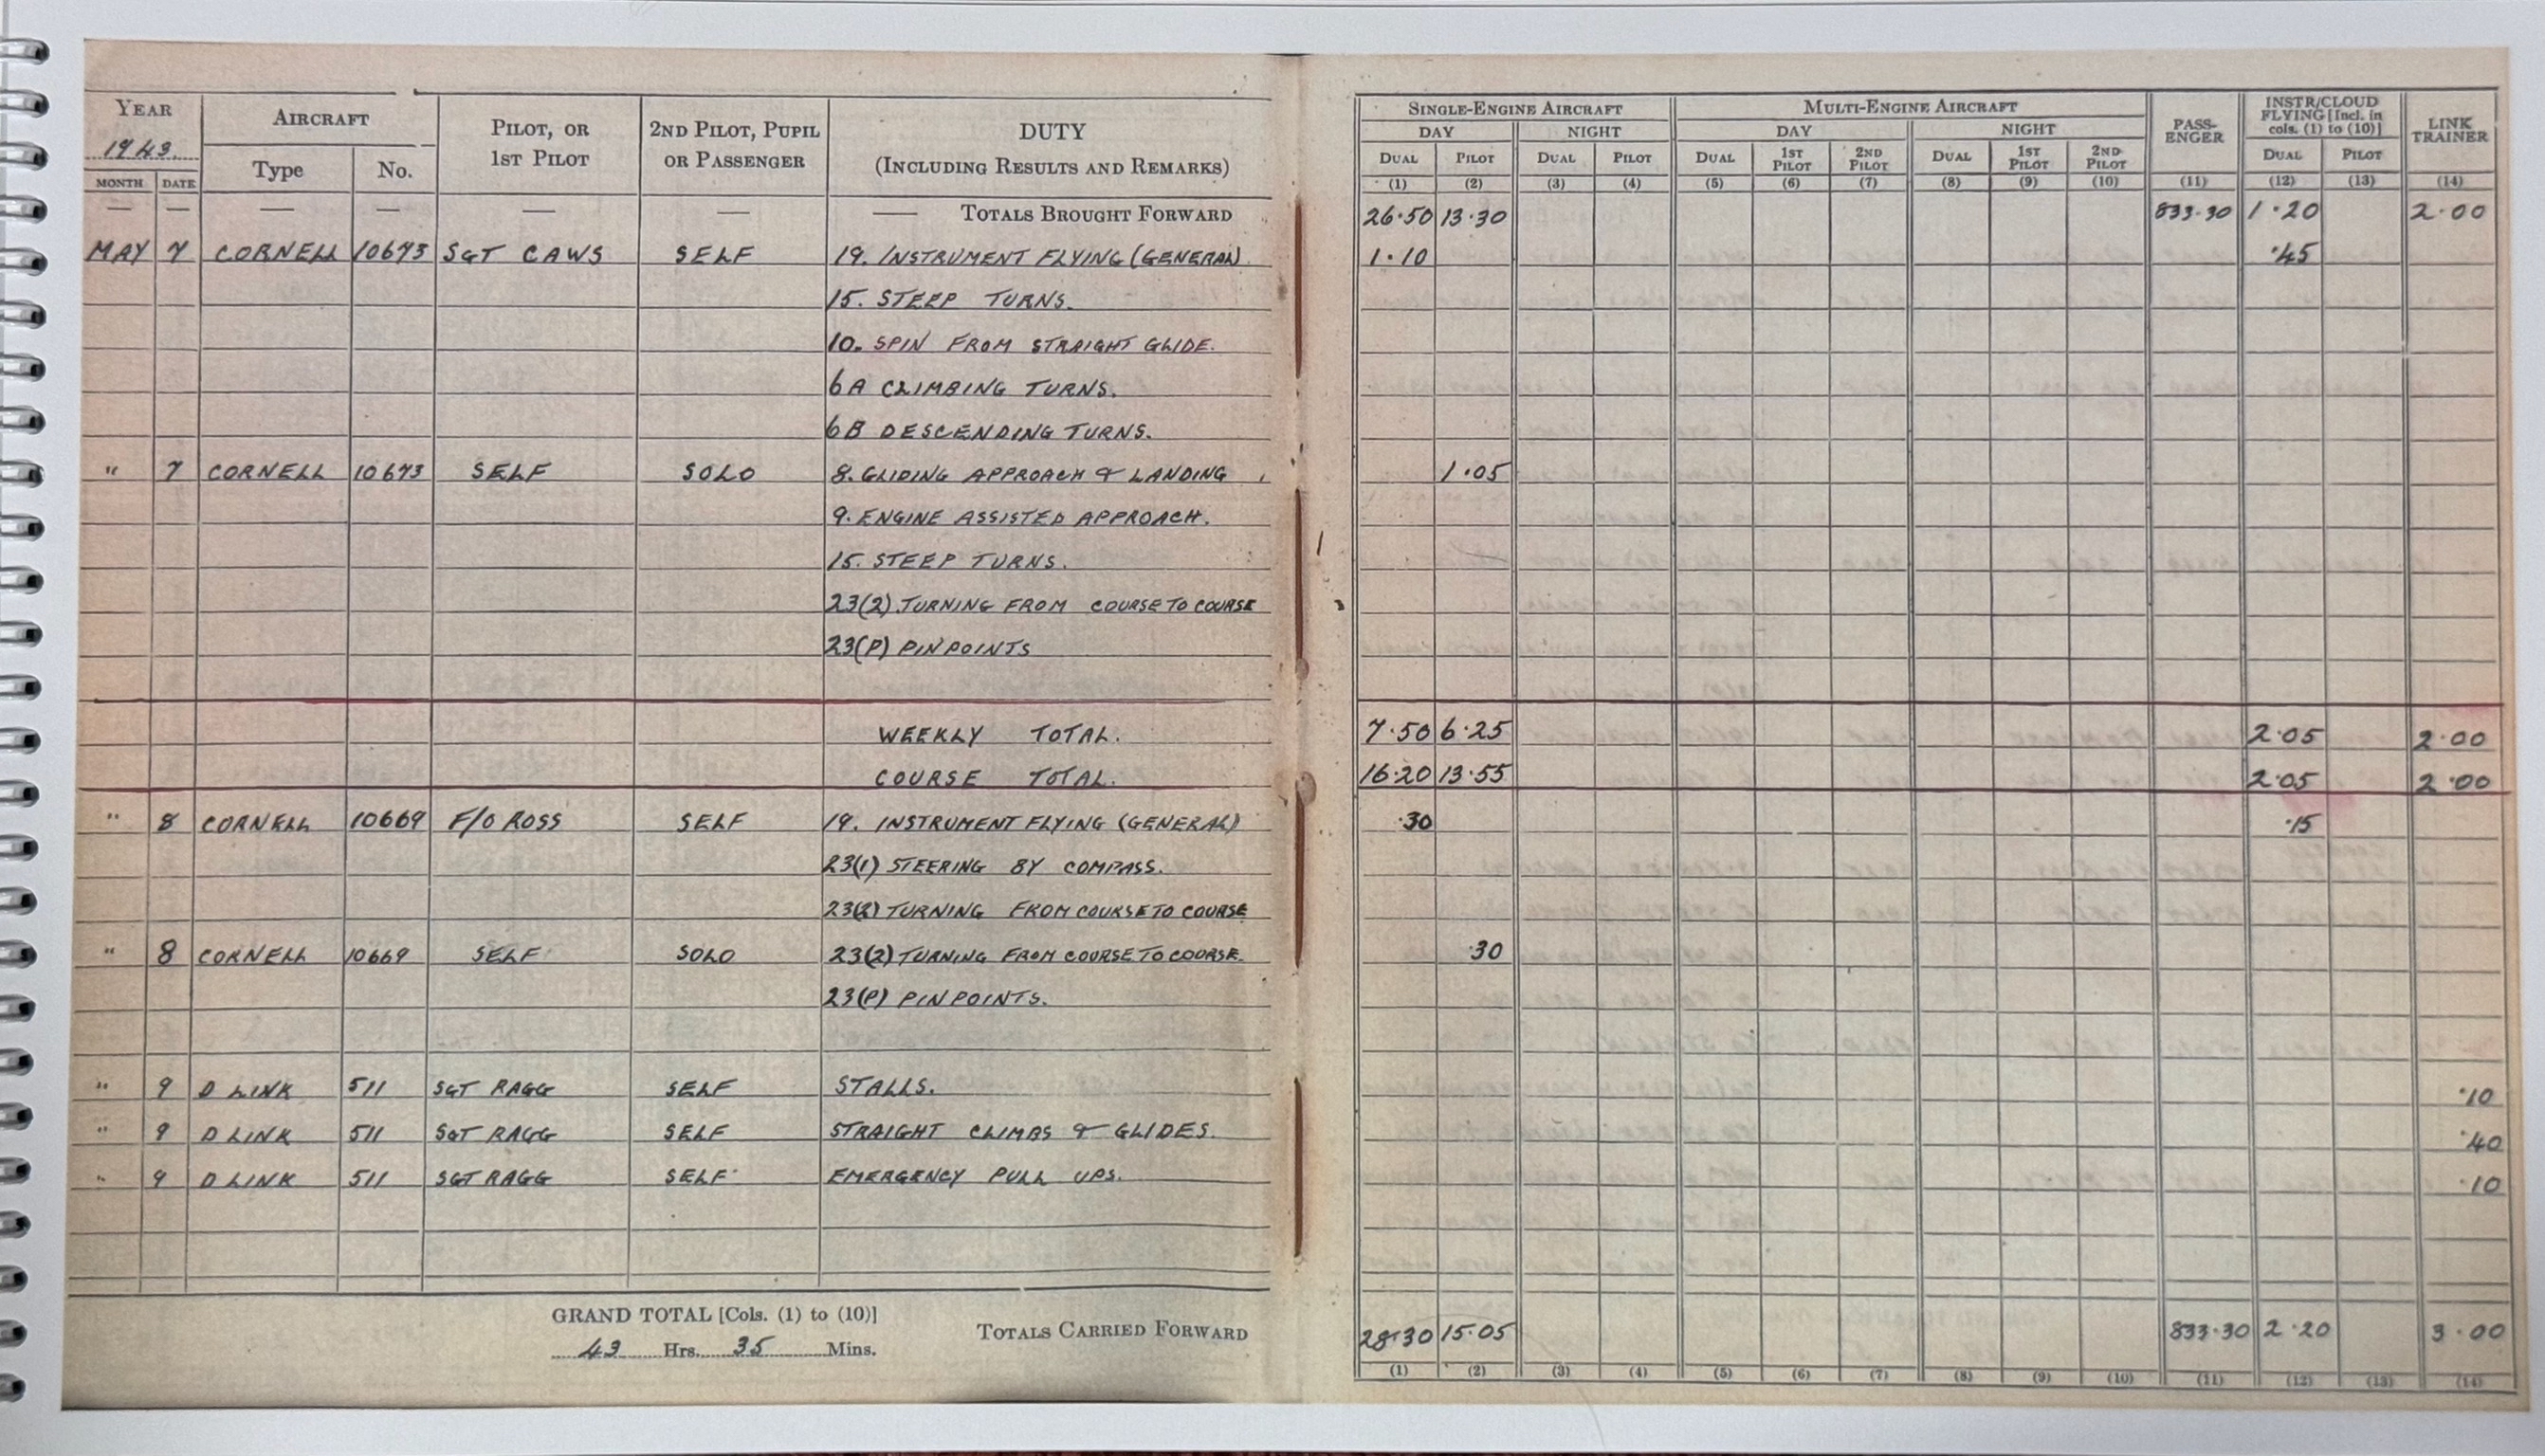 YEAR AIRCRAFT PILOT, OR 1ST PILOT 2ND PILOT, PUPIL OR PASSENGER DUTY (INCLUDING RESULTS AND REMARKS)
1943. Type No.
MONTH DATE
— — — — — — — TOTALS BROUGHT FORWARD
MAY 7 CORNELL 10673 SGT CAWS SELF 19. INSTRUMENT FLYING (GENERAL)
15. STEEP TURNS.
10. SPIN FROM STRAIGHT GLIDE.
6A CLIMBING TURNS.
6B DESCENDING TURNS.
" 7 CORNELL 10673 SELF SOLO 8. GLIDING APPROACH & LANDING
9. ENGINE ASSISTED APPROACH.
15. STEEP TURNS.
23(2). TURNING FROM COURSE TO COURSE
23(P) PINPOINTS
WEEKLY TOTAL.
COURSE TOTAL.
" 8 CORNELL 10669 F/O ROSS SELF 19. INSTRUMENT FLYING (GENERAL)
23(1) STEERING BY COMPASS.
23(2) TURNING FROM COURSE TO COURSE
" 8 CORNELL 10669 SELF SOLO 23(2) TURNING FROM COURSE TO COURSE.
23(P) PINPOINTS.
" 9 D LINK 511 SGT RAGG SELF STALLS.
" 9 D LINK 511 SGT RAGG SELF STRAIGHT CLIMBS & GLIDES.
" 9 D LINK 511 SGT RAGG SELF EMERGENCY PULL UPS.
GRAND TOTAL [Cols. (1) to (10)]
43 Hrs. 35 Mins.
TOTALS CARRIED FORWARD
SINGLE-ENGINE AIRCRAFT MULTI-ENGINE AIRCRAFT PASS-ENGER INSTR/CLOUD FLYING [Incl. in cols. (1) to (10)] LINK TRAINER
DAY NIGHT DAY NIGHT
DUAL PILOT DUAL PILOT DUAL 1ST PILOT 2ND PILOT DUAL 1ST PILOT 2ND PILOT DUAL PILOT
(1) (2) (3) (4) (5) (6) (7) (8) (9) (10) (11) (12) (13) (14)
26·50 13·30 833·30 1·20 2·00
1·10 ·45
1·05
7·50 6·25 2·05 2·00
16·20 13·55 2·05 2·00
·30 ·15
·30
·10
·40
·10
28·30 15·05 833·30 2·20 3·00
(1) (2) (3) (4) (5) (6) (7) (8) (9) (10) (11) (12) (13) (14)